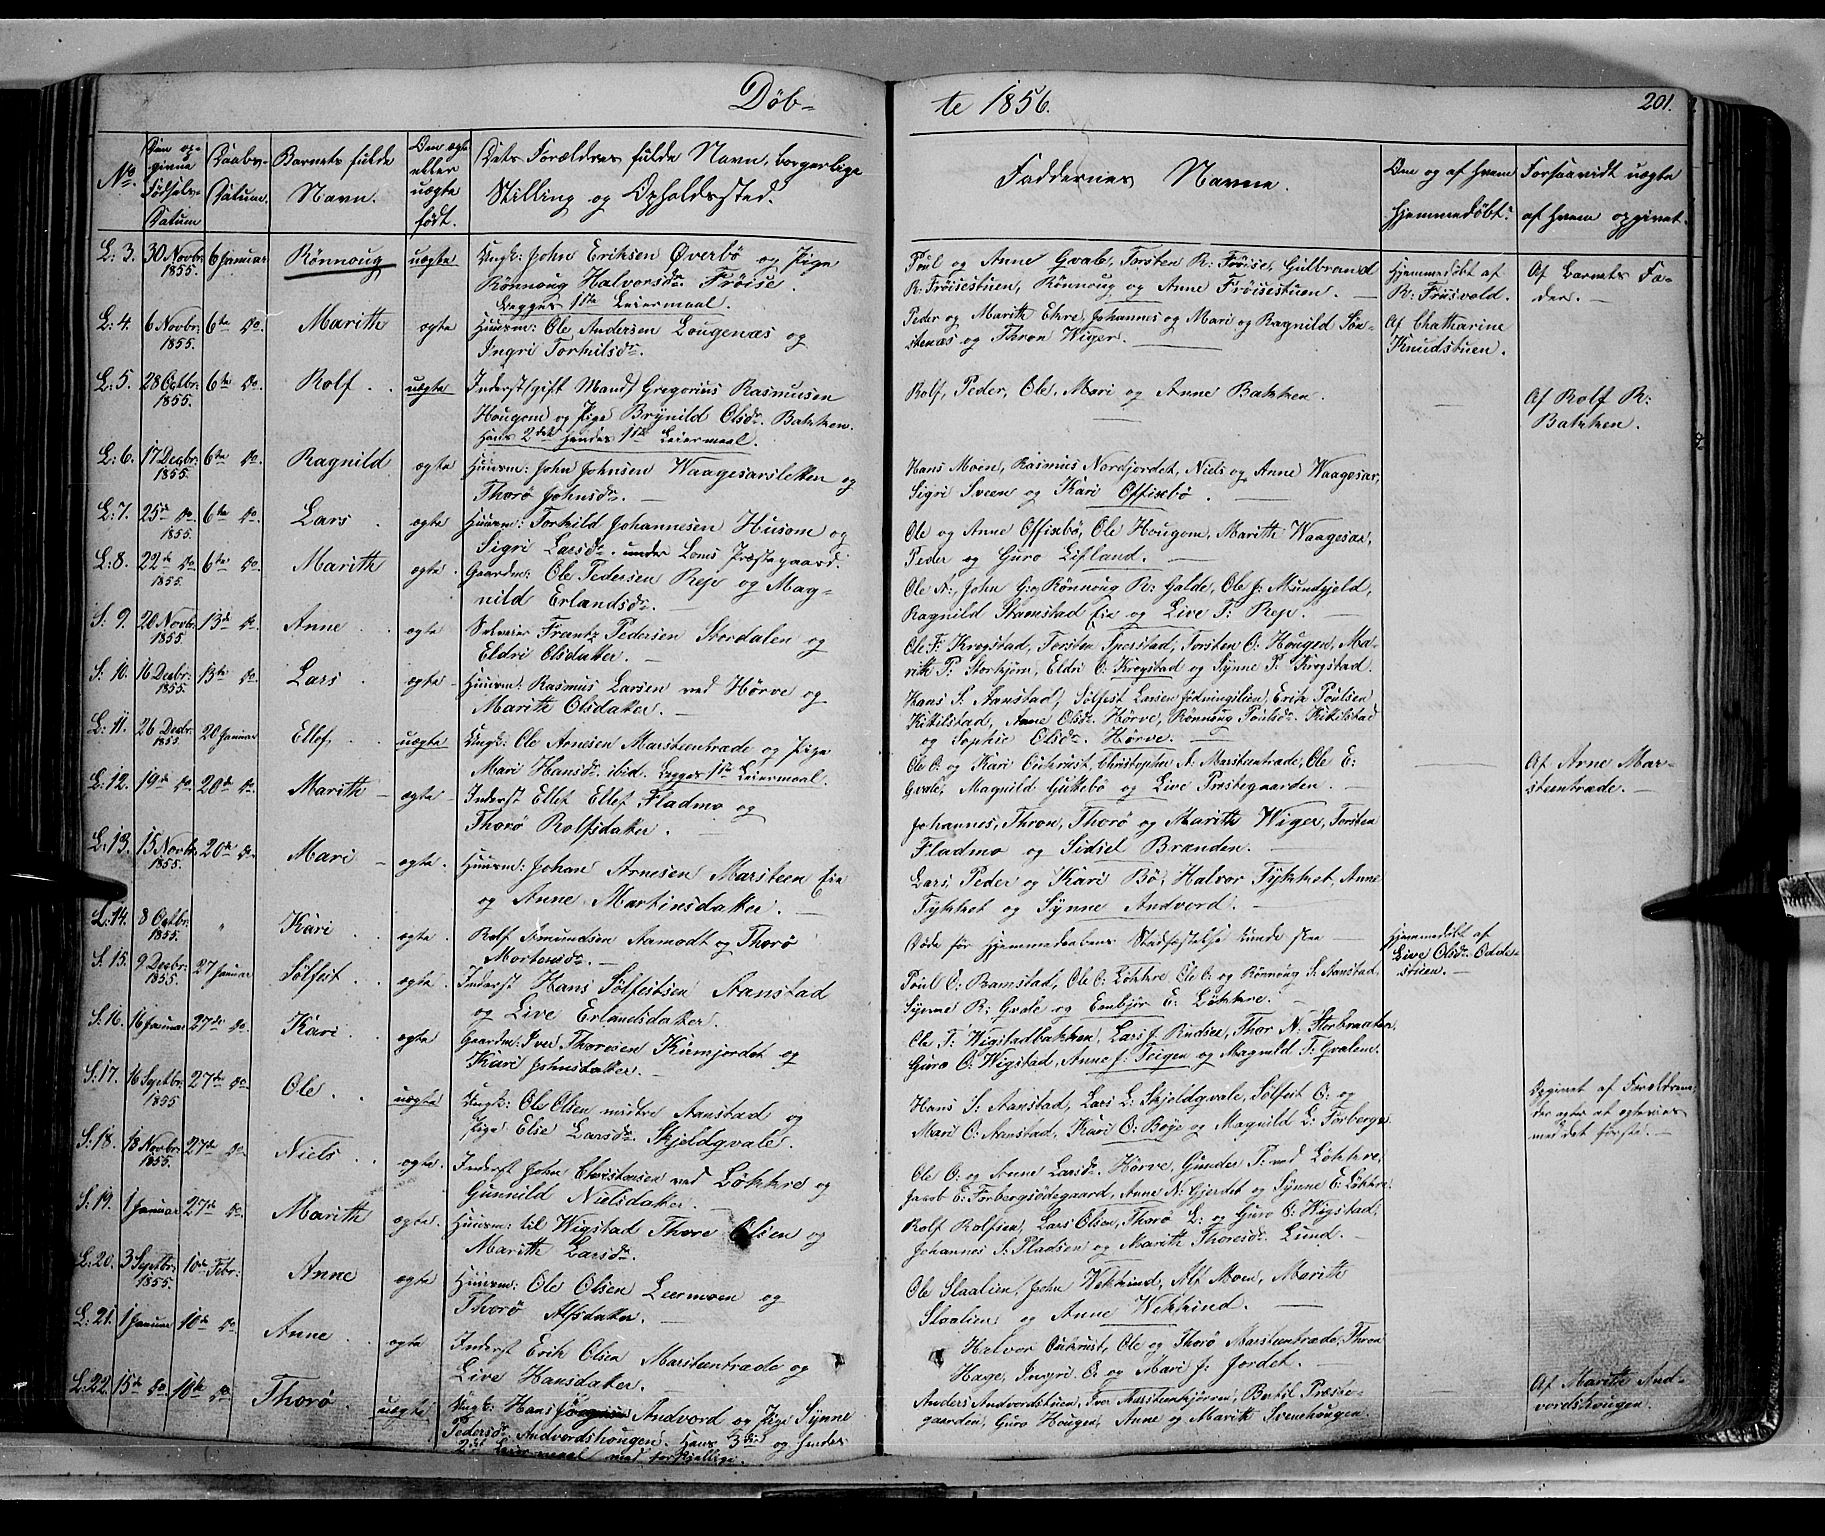 Døb-
te 1856.
201.
No.
Den op-
givne
Fødsels-
Datum
Daabs-
Datum.
Barnets fulde
Navn.
Om ægte
eller
uægte
født.
Dets Forældres fulde Navn, borgerlige
Stilling og Opholdssted.
Faddernes Navne.
Om og af hvem
hjemmedøbt?
Forsaavidt uægte
af hvem opgivet.
L: 3. 30 Novbr. 1855. 6 Januar Rønnoug uægte Ungk: John Eriksen Øverbø og Pige
Rønnoug Halvorsdr. Frøise.
Begges 1ste Leiermaal.
Poul og Anne Gvale, Torsten R: Frøise, Gulbrand
R: Frøisestuen, Rønnoug og Anne Frøisestuen.
Hjemmedøbt af
R: Frisvold.
Af Barnets Fa-
der.
L: 4. 6 Novbr. 1855. 6te do. Marith ægte Huusm: Ole Andersen Lougenæs og
Ingri Torkilsdr.
Peder og Marith Ekre, Johannes og Mari og Ragnild Sta-
stenæs og Thron Wiger.
Af Chatharine
Knudstuen.
L: 5. 28 Octbr: 1855. 6te do. Rolf uægte Inderst (gift Mand) Gregorius Rasmusen
Hougom og Pige Brynild Olsdr. Bakken.
Hans 2det hendes 1ste Leiermaal.
Rolf, Peder, Ole, Mari og Anne Bakken.
Af Rolf R:
Bakken.
L: 6. 17 Decbr: 1855. 6te do. Ragnild ægte Huusm: John Johnsen Waagesarsletten og
Thorø Johnsdr.
Hans Moen, Rasmus Nordjordet, Niels og Anne Waagesar,
Sigri Sveen og Kari Offisbø.
L: 7. 25de do 1855. 6te do. Lars ægte Huusm: Torkild Johannesen Husom og
Sigri Larsdr. under Loms Præstegaard.
Ole og Anne Offisbø, Ole Hougom, Marith Waagesar,
Peder og Guro Lifland.
L: 8. 22de do 1855. 6te do. Marith ægte Gaardm: Ole Pedersen Rep og Mag-
nild Erlandsdr.
Ole N:, John G: og Rønnoug R: Galde, Ole J: Mundhjeld,
Ragnild Stamstad Eie og Live T: Rep.
S: 9. 20 Novbr. 1855. 13de do. Anne ægte Selveier Frantz Pedersen Stordalen og
Eldri Olsdatter.
Ole F: Krogstad, Torsten Sperstad, Torsten O: Hougen, Ma-
rith P: Storhjørn, Eldri O: Krogstad og Synne P: Krogstad.
S: 10. 16 Decbr: 1855. 13te do. Lars ægte Huusm: Rasmus Larsen ved Hørve og
Marith Olsdatter.
Hans S: Aanstad, Sølfest Larsen Eidningslien, Erik Poulsen
Kikilstad, Anne Olsdr. Hørve, Rønnoug Poulsdr. Kikilstad
og Sophie Olsdr. Hørve.
L: 11. 26 Decbr: 1855. 20 Januar Ellef uægte Ungk: Ole Arnesen Marsteentrade og Pige
Mari Hansdr. ibid. Begges 1ste Leiermaal.
Ole O: og Kari Oukrust, Christopher A: Marsteentrade, Ole E:
Gvale, Magnild Guttebø og Live Præstegaarden.
Af Arne Mar-
steentrade.
L: 12. 19de do. 20de do. Marith ægte Inderst Ellef Ellef Fladmo og
Thorø Rolfsdatter.
Johannes, Thron, Thorø og Marith Wiger, Torsten
Fladmo og Sidsel Branden.
L: 13. 15 Novbr. 1855. 20de do. Mari ægte Huusm: Johan Arnesen Marsteen Eie
og Anne Martinsdatter.
Lars, Peder og Kari Bø, Halvor Tykket, Anne
Tykket og Synne Andvord.
L: 14. 8 Octbr. 1855. " Kari ægte Rolf Amundsen Aamodt og Thorø
Mortensdr.
Døde før Hjemmedaabens Stadfæstelse kunde skee
Hjemmedøbt af
Live Olsdr. Oddes-
stuen.
S: 15. 9 Decbr: 1855. 27 Januar Sølfest ægte Inderst Hans Sølfestsen Aanstad
og Live Erlandsdatter.
Poul O: Bamstad, Ole O: Løkkre, Ole O: og Rønnoug S: Aanstad,
Synne R: Gvale og Embjør E: Løkkre.
S: 16. 16 Januar 27de do. Kari ægte Gaardm: Iver Thoresen Kirmjordet og
Kari Johnsdatter.
Ole T: Wigstadbakken, Lars J: Rudsee, Thor N: Storbraaten,
Guro O: Wigstad, Anne J: Teigen og Magnild T: Gvalem.
S: 17. 16 Septbr: 1855 27de do. Ole uægte Ungk: Ole Olsen midtre Aanstad og
Pige Elie Larsdr. Skjeldgvale.
Hans S: Aanstad, Lars L: Skjeldgvale, Sølfest O: og
Mari O: Aanstad, Kari O: Bøje og Magnild L: Forberge.
Opgivet af Forældrene
der agter at ægtevies
med det første.
S: 18. 18 Novbr: 1855. 27de do. Niels ægte Inderst John Christensen ved Løkkre og
Gunnild Nielsdatter.
Ole O: og Anne Larsdr. Hørve, Gunder T: ved Løkkre,
Jacob E: Forbergsødegaard, Anne N: Gjerdet og Synne E: Løkkre.
S: 19. 1 Januar 27de do. Marith ægte Huusm: til Wigstad Thore Olsen og
Marith Larsdr.
Rolf Rolfsen, Lars Olsen, Thorø L: og Guro O: Wigstad,
Johannes S: Pladsen og Marith Thoresdr. Lund.
L: 20. 3 Septbr: 1855. 10de Febr: Anne ægte Huusm: Ole Olsen Leermoen og
Thorø Alfsdatter.
Ole Slaalien, John Wekkind, Alf Moen, Marith
Slaalien og Anne Wekkind.
L: 21. 1 Januar 10de do Anne ægte Inderst Erik Olsen Marsteentrade og
Live Hansdatter.
Halvor Oukrust, Ole og Thorø Marsteentrade, Thron
Hage, Ingri O: og Mari J: Jordet.
L: 22. 15de do 10de do. Thorø uægte Ungk: Hans Andvord og Pige Synne
Pedersdr. Andvordshougen. Hans 3die og hendes
2det Leiermaal med forskjellige.
Anders Andvordstuen, Iver Marsteenhjørnen, Botil Præste-
gaarden, Guro Hougen, Anne og Marith Svenshougen.
Af Marith And-
vordshougen.